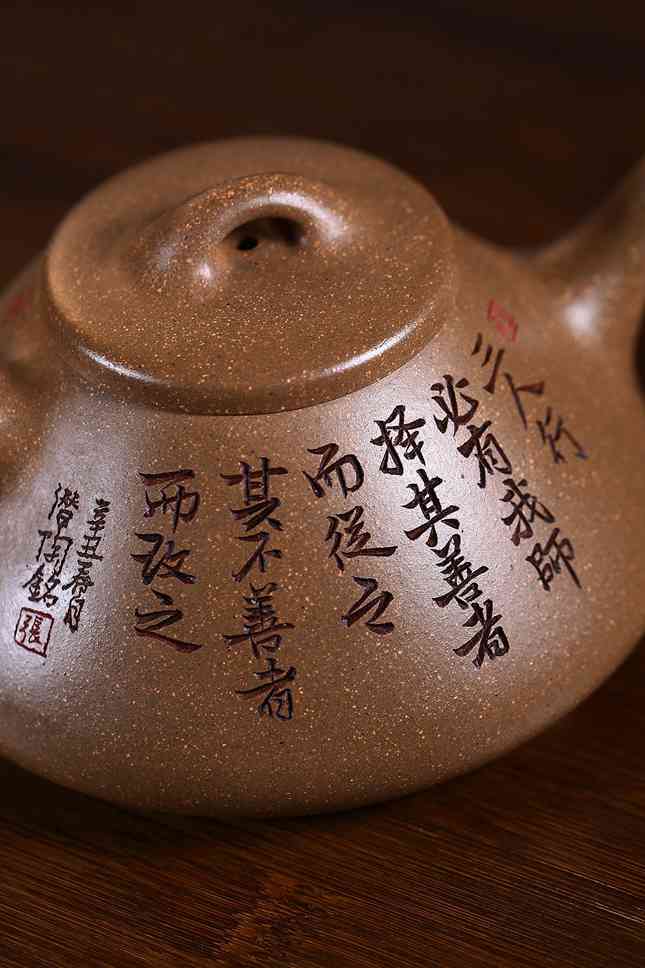 三人行
必有我師
择其善者
而從之
其不善者
而改之
辛丑春月
潜陶銘
張